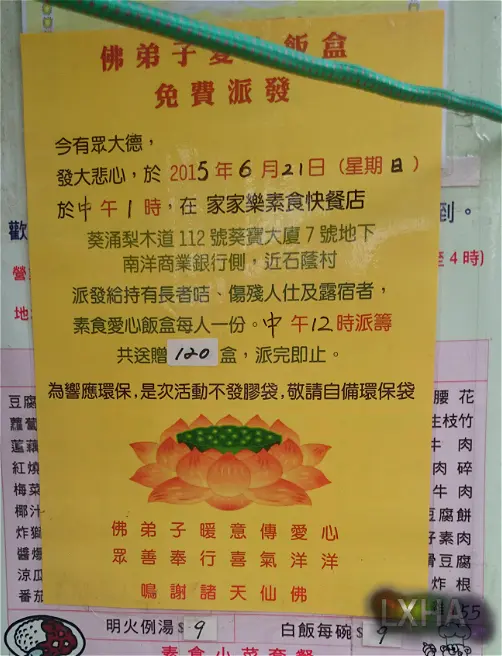 佛弟子愛心飯盒
免費派發
今有眾大德，
發大悲心，於 2015年6月21日（星期日）
於中午1時，在 家家樂素食快餐店
葵涌梨木道112號葵寶大廈7號地下
南洋商業銀行側，近石蔭村
派發給持有長者咭、傷殘人仕及露宿者，
素食愛心飯盒每人一份。中午12時派籌
共送贈120盒，派完即止。
為響應環保，是次活動不發膠袋，敬請自備環保袋
佛弟子暖意傳愛心
眾善奉行喜氣洋洋
鳴謝諸天仙佛
歡
到。
營
至4時)
地
豆腐
蘿蔔
蓮藕
紅燒
梅菜
椰汁
炸獅
醬爆
涼瓜
番茄
腰花
生枝竹
牛肉
肉碎
牛肉
豆腐餅
子素肉
骨豆腐
炸根
55
明火例湯$9
白飯每碗$9
素食小菜套餐
LXHA